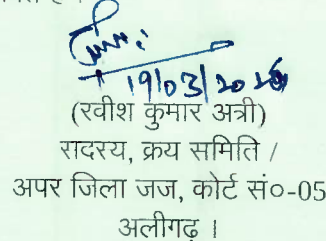 19/03/2026
(रवीश कुमार अत्री)
सदस्य, क्रय समिति /
अपर जिला जज, कोर्ट सं०-05
अलीगढ़ ।